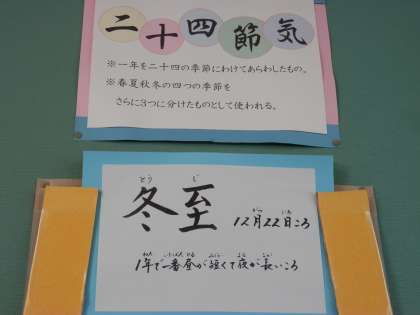 二十四節気
※一年を二十四の季節にわけてあらわしたもの。
※春夏秋冬の四つの季節を
さらに3つに分けたものとして使われる。
とう じ
冬至 12月22日ころ
1年で一番昼が短くて夜が長いころ